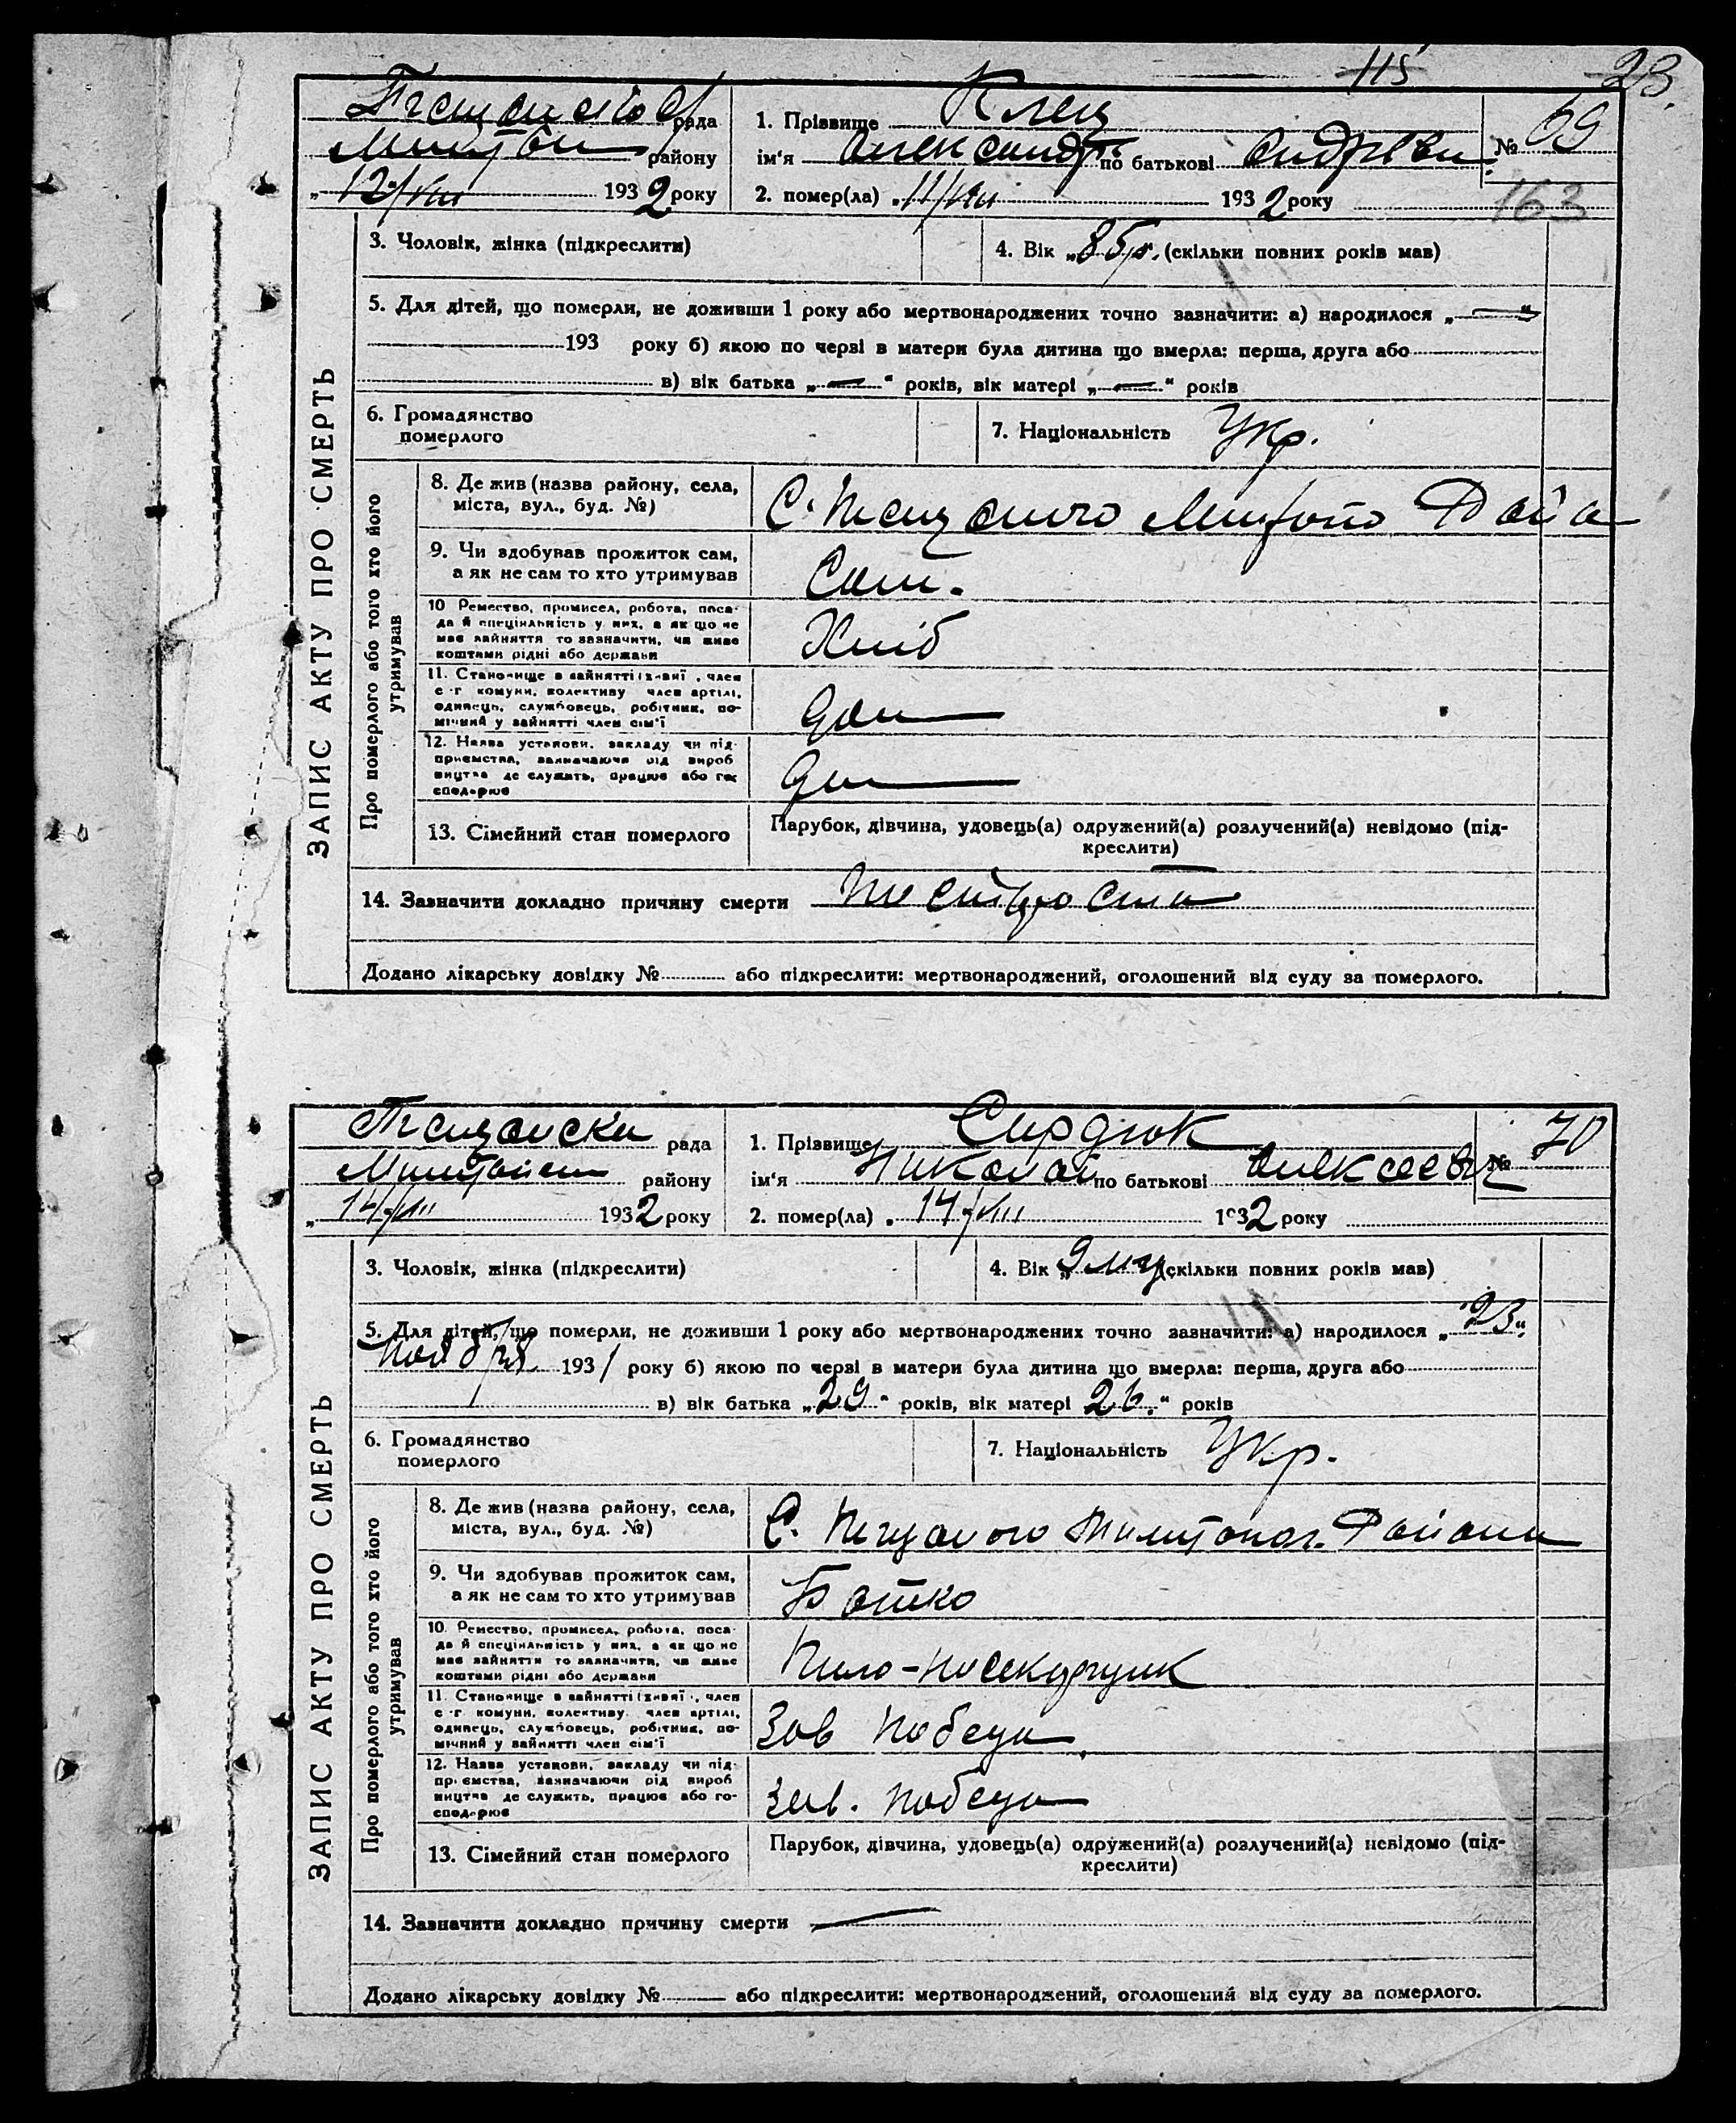 115 23.
рада
району
12/VIII 1932 року
1. Прізвище Клец
ім‘я Александр по батькові
2. помер(ла) „11/VIII 1932 року
№ 69
163
3. Чоловік, жінка (підкреслити)
4. Вік „85 р. (скільки повних років мав)
5. Для дітей, що померли, не доживши 1 року або мертвонароджених точно зазначити: а) народилося „—“
193 року б) якою по черві в матери була дитина що вмерла: перша, друга або
в) вік батька „—“ років, вік матері „—“ років
6. Громадянство
померлого
7. Національність Укр.
ЗАПИС АКТУ ПРО СМЕРТЬ
Про померлого або того хто його
утримував
8. Де жив (назва району, села,
міста, вул., буд. №)
С.
9. Чи здобував прожиток сам,
а як не сам то хто утримував
Сам.
10 Ремество, промисел, робота, поса-
да й спеціяльність у них, а як що не
має зайняття то зазначити, чи живе
коштами рідні або держави
Хліб
11. Становище в зайнятті (хазяї, член
с.-г комуни, колективу член артілі,
одинець, службовець, робітник, по-
мічний у зайнятті член сім‘ї
12. Назва установи, закладу чи під-
приємства, зазначаючи рід вироб
ництва де служить, працює або гос
сподарює
13. Сімейний стан померлого
Парубок, дівчина, удовець(а) одружений(а) розлучений(а) невідомо (під-
креслити)
14. Зазначити докладно причину смерти
Додано лікарську довідку № або підкреслити: мертвонароджений, оголошений від суду за померлого.
рада
району
„14/VIII 1932 року
1. Прізвище Сирдюк
ім‘я Николай по батькові Алексеевич
2. помер(ла) „14/VIII 1932 року
№ 70
3. Чоловік, жінка (підкреслити)
4. Вік „9 мц (скільки повних років мав)
5. Для дітей, що померли, не доживши 1 року або мертвонароджених точно зазначити: а) народилося „23“
Ноября 1931 року б) якою по черві в матери була дитина що вмерла: перша, друга або
в) вік батька „29“ років, вік матері 26.“ років
6. Громадянство
померлого
7. Національність Укр.
ЗАПИС АКТУ ПРО СМЕРТЬ
Про померлого або того хто його
утримував
8. Де жив (назва району, села,
міста, вул., буд. №)
С.
9. Чи здобував прожиток сам,
а як не сам то хто утримував
Батко
10. Ремество, промисел, робота, поса-
да й спеціяльність у них, а як що не
має зайняття то зазначити, чи живе
коштами рідні або держави
11. Становище в зайнятті (хазяї, член
с.-г комуни, колективу член артілі,
одинець, службовець, робітник, по-
мічний у зайнятті член сім‘ї
Зав Победа
12. Назва установи, закладу чи під-
приємства, зазначаючи рід вироб
ництва де служить, працює або го-
сподарює
Зав. Победа
13. Сімейний стан померлого
Парубок, дівчина, удовець(а) одружений(а) розлучений(а) невідомо (під-
креслити)
14. Зазначити докладно причину смерти —
Додано лікарську довідку № або підкреслити: мертвонароджений, оголошений від суду за померлого.